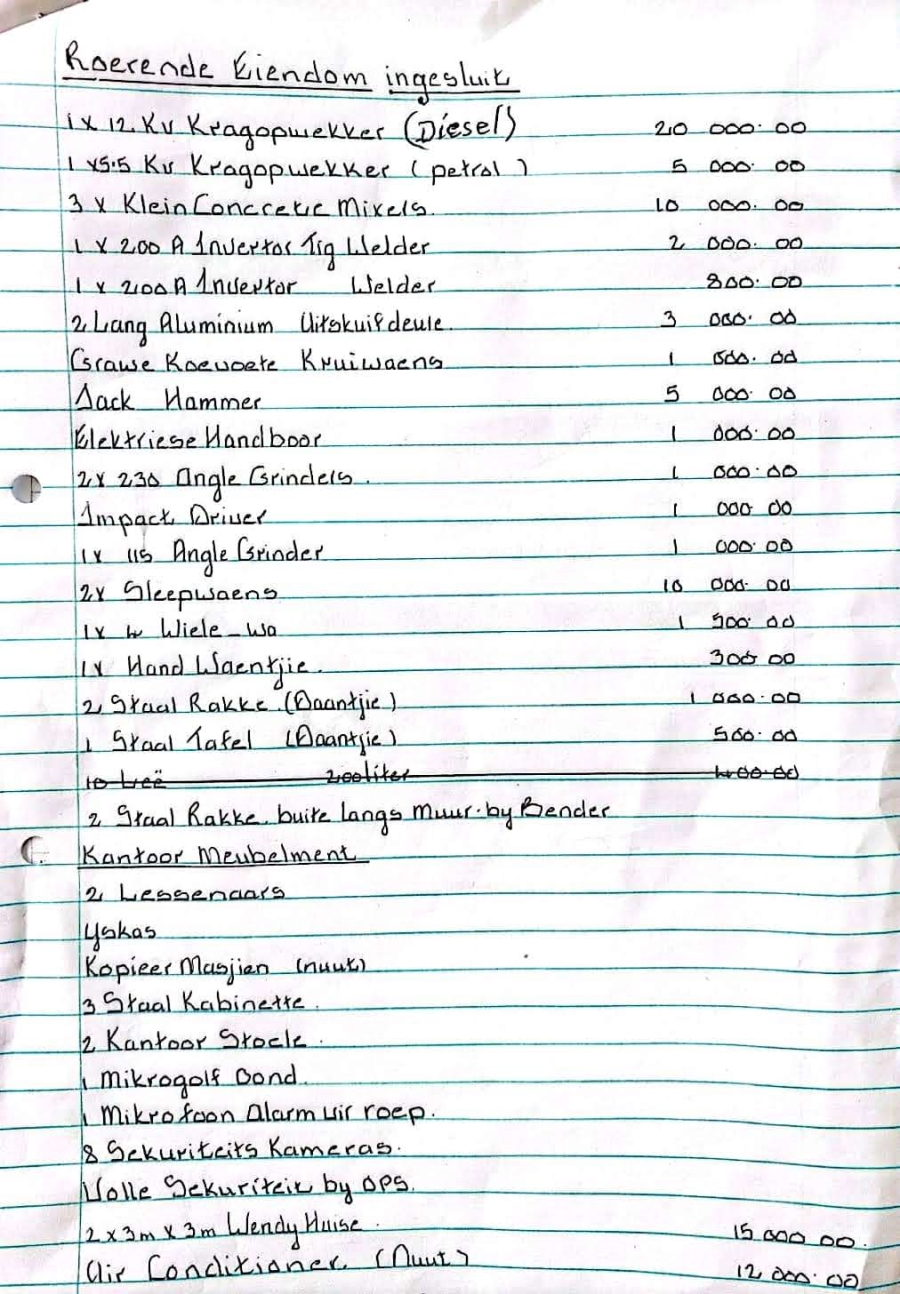 Roerende Eiendom ingesluit
1 x 12 Kv Kragopwekker (Diesel) 20 000.00
1 x 5.5 Kv Kragopwekker (petrol) 5 000.00
3 x Klein Concrete Mixels. 10 000.00
1 x 200 A Invertor Tig Welder 2 000.00
1 x 200 A Invertor Welder 800.00
2 Lang Aluminium Uitskuifdeure. 3 000.00
Grawe Koevoete Kruiwaens 1 500.00
Jack Hammer 5 000.00
Elektriese Handboor 1 000.00
2 x 230 Angle Grinders. 1 000.00
Impact Driver 1 000 00
1 x 115 Angle Grinder 1 000.00
2 x Sleepwaens 10 000.00
1 x 4 Wiele-wa 1 500.00
1 x Hand Waentjie. 300 00
2 Staal Rakke. (Daantjie) 1 000.00
1 Staal Tafel (Daantjie) 500.00
10 Leë 200liter 400.00
2 Staal Rakke. buite langs muur. by Bender
Kantoor Meubelment
2 Lessenaars
Yskas
Kopieer Masjien (nuut)
3 Staal Kabinette.
2 Kantoor Stoele.
1 Mikrogolf Oond.
1 Mikrofoon Alarm uit roep.
8 Sekuriteits Kameras.
Volle Sekuriteit by OPS.
2 x 3m x 3m Wendy Huise. 15 000 00.
Air Conditioner. (Nuut) 12 000.00